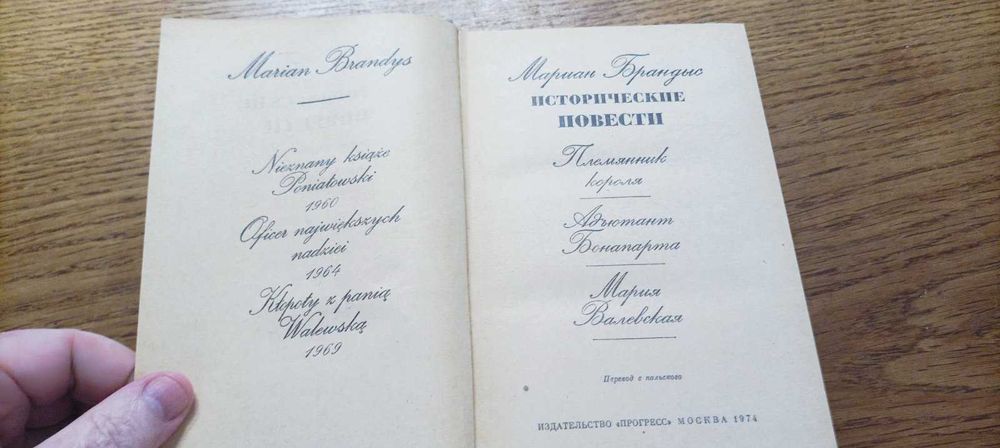 Marian Brandys
Nieznany książe
Poniatowski
1960
Oficer największych
nadziei
1964
Kłopoty z panią
Walewską
1969
Мариан Брандыс
ИСТОРИЧЕСКИЕ
ПОВЕСТИ
Племянник
короля
Адъютант
Бонапарта
Мария
Валевская
Перевод с польского
ИЗДАТЕЛЬСТВО «ПРОГРЕСС» МОСКВА 1974